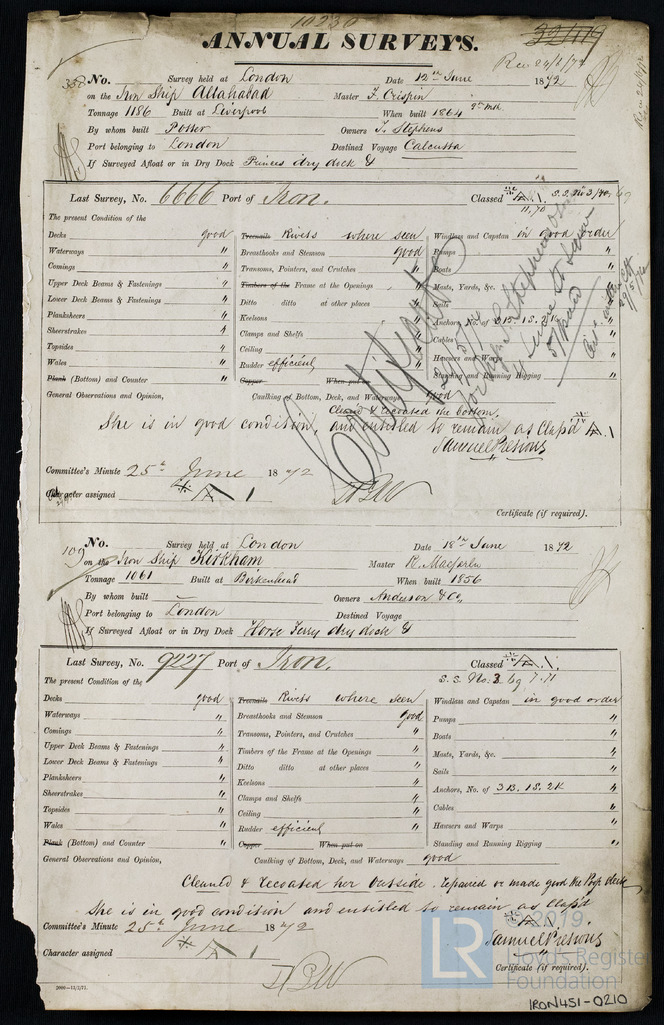 10230
ANNUAL SURVEYS.
32/179
Rec 24/6/72
338 No. Survey held at London Date 12th June 1872
on the Iron Ship Allahabad Master F. Crispin
Tonnage 1186 Built at Liverpool When built 1864 9th mo
By whom built Potter Owners T. Stephens
Port belonging to London Destined Voyage Calcutta
If Surveyed Afloat or in Dry Dock Princes dry dock &
Last Survey, No. 6666 Port of Iron. Classed A 1. S.S. No 3/
11,70
The present Condition of the
Decks good Treenails Rivets where seen Windlass and Capstan in good order
Waterways " Breasthooks and Stemson good Pumps "
Comings " Transoms, Pointers, and Crutches " Boats "
Upper Deck Beams & Fastenings " Timbers of the Frame at the Openings " Masts, Yards, &c. "
Lower Deck Beams & Fastenings " Ditto ditto at other places " Sails "
Planksheers " Keelsons " Anchors, No. of 3B. 1S. 2K "
Sheerstrakes " Clamps and Shelfs " Cables "
Topsides " Ceiling " Hawsers and Warps "
Wales " Rudder efficient Standing and Running Rigging "
Plank (Bottom) and Counter " Copper When put on
General Observations and Opinion, Caulking of Bottom, Deck, and Waterways good
Clean'd & recoated the bottom.
She is in good condition, and entitled to remain as Class'd A. 1
Samuel Presious
Certificate
Committee's Minute 25th June 1872
Character assigned A 1
Certificate (if required).
109 No. Survey held at London Date 18th June 1872
on the Iron Ship Kirkham Master R. Macferlie
Tonnage 1061 Built at Birkenhead When built 1856
By whom built — Owners Anderson & Co,
Port belonging to London Destined Voyage
If Surveyed Afloat or in Dry Dock Horse Ferry dry dock &
Last Survey, No. 9227 Port of Iron. Classed A. 1.
S.S. No. 3. 69 7.71
The present Condition of the
Decks good Treenails Rivets where seen Windlass and Capstan in good order
Waterways " Breasthooks and Stemson good Pumps "
Comings " Transoms, Pointers, and Crutches " Boats "
Upper Deck Beams & Fastenings " Timbers of the Frame at the Openings " Masts, Yards, &c. "
Lower Deck Beams & Fastenings " Ditto ditto at other places " Sails "
Planksheers " Keelsons " Anchors, No. of 3B. 1S. 2K "
Sheerstrakes " Clamps and Shelfs " Cables "
Topsides " Ceiling " Hawsers and Warps "
Wales " Rudder efficient Standing and Running Rigging "
Plank (Bottom) and Counter " Copper When put on
General Observations and Opinion, Caulking of Bottom, Deck, and Waterways good
Cleaned & recoated her outside. repaired or made good the Poop deck
She is in good condition and entitled to remain as Class'd
A. 1.
Committee's Minute 25th June 1872
Samuel Presious
Character assigned A 1
Certificate (if required).
2000—12/3/71.
© 2019
LR Lloyd's Register Foundation
IRON451-0210